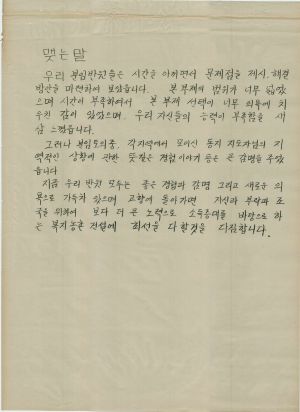 맺는 말
우리 분임반원들은 시간을 아끼면서 문제점을 제시, 해결
방안을 마련하여 보았습니다. 본 부제의 범위가 너무 넓었
으며 시간이 부족하여서 본 부제 선택이 너무 의욕에 치
우친 감이 있었으며, 우리 자신들의 능력이 부족함을 새
삼 느꼈습니다.
그러나 분임토의중, 각지역에서 모이신 동지 지도자님의 지
역적인 상황에 관한 뜻깊은 경험 이야기 등은 큰 감명을 주었
습니다
지금 우리 반원 모두는 좋은 경험과 감명 그리고 새로운 의
욕으로 가득차 있으며 고향에 돌아가면 자신과 부락과 조
국을 위하여 보다 더 큰 노력으로 소득증대를 바탕으로 하
는 복지농촌 건설에 최선을 다할것을 다짐합니다.